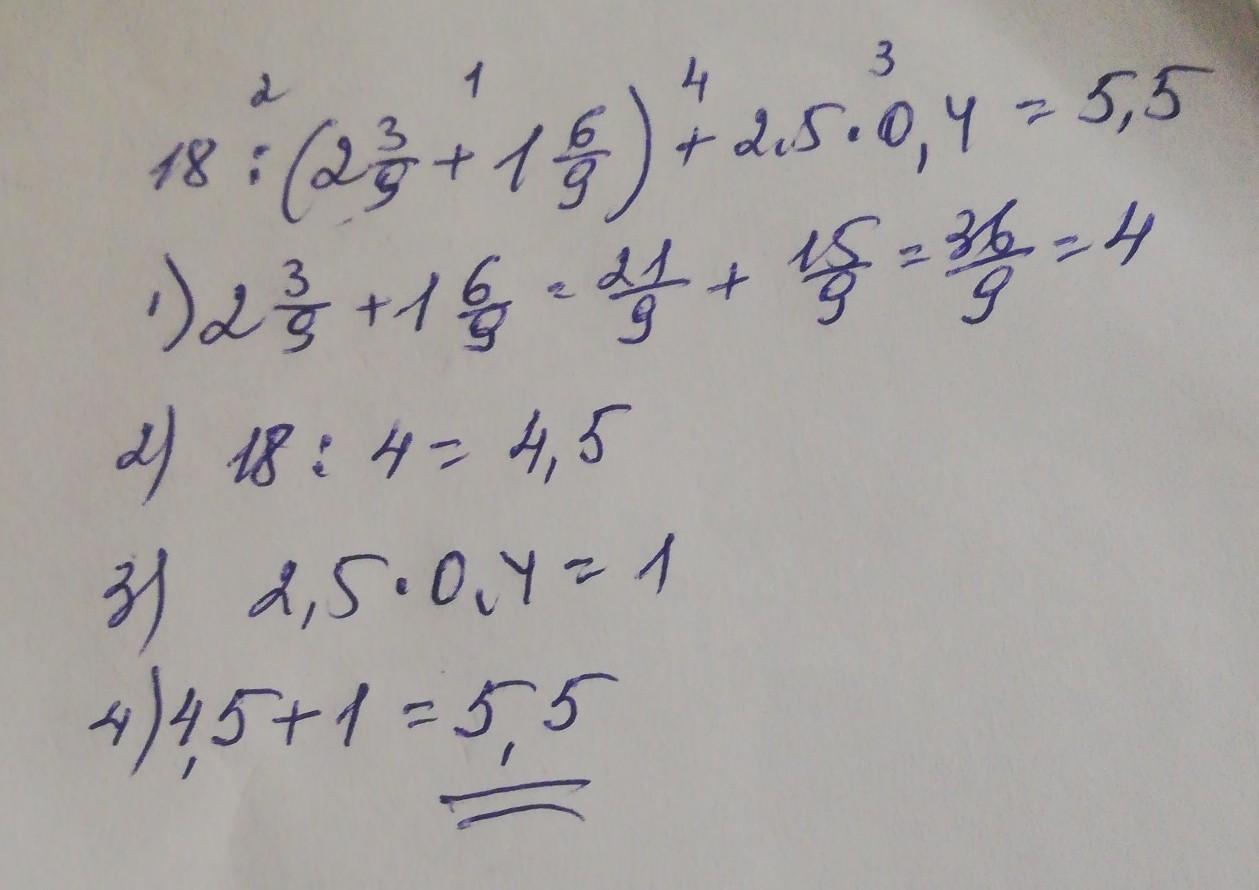 2 1 4 3
18 : (2 3/9 + 1 6/9) + 2,5 · 0,4 = 5,5
1) 2 3/9 + 1 6/9 = 21/9 + 15/9 = 36/9 = 4
2) 18 : 4 = 4,5
3) 2,5 · 0,4 = 1
4) 4,5 + 1 = 5,5